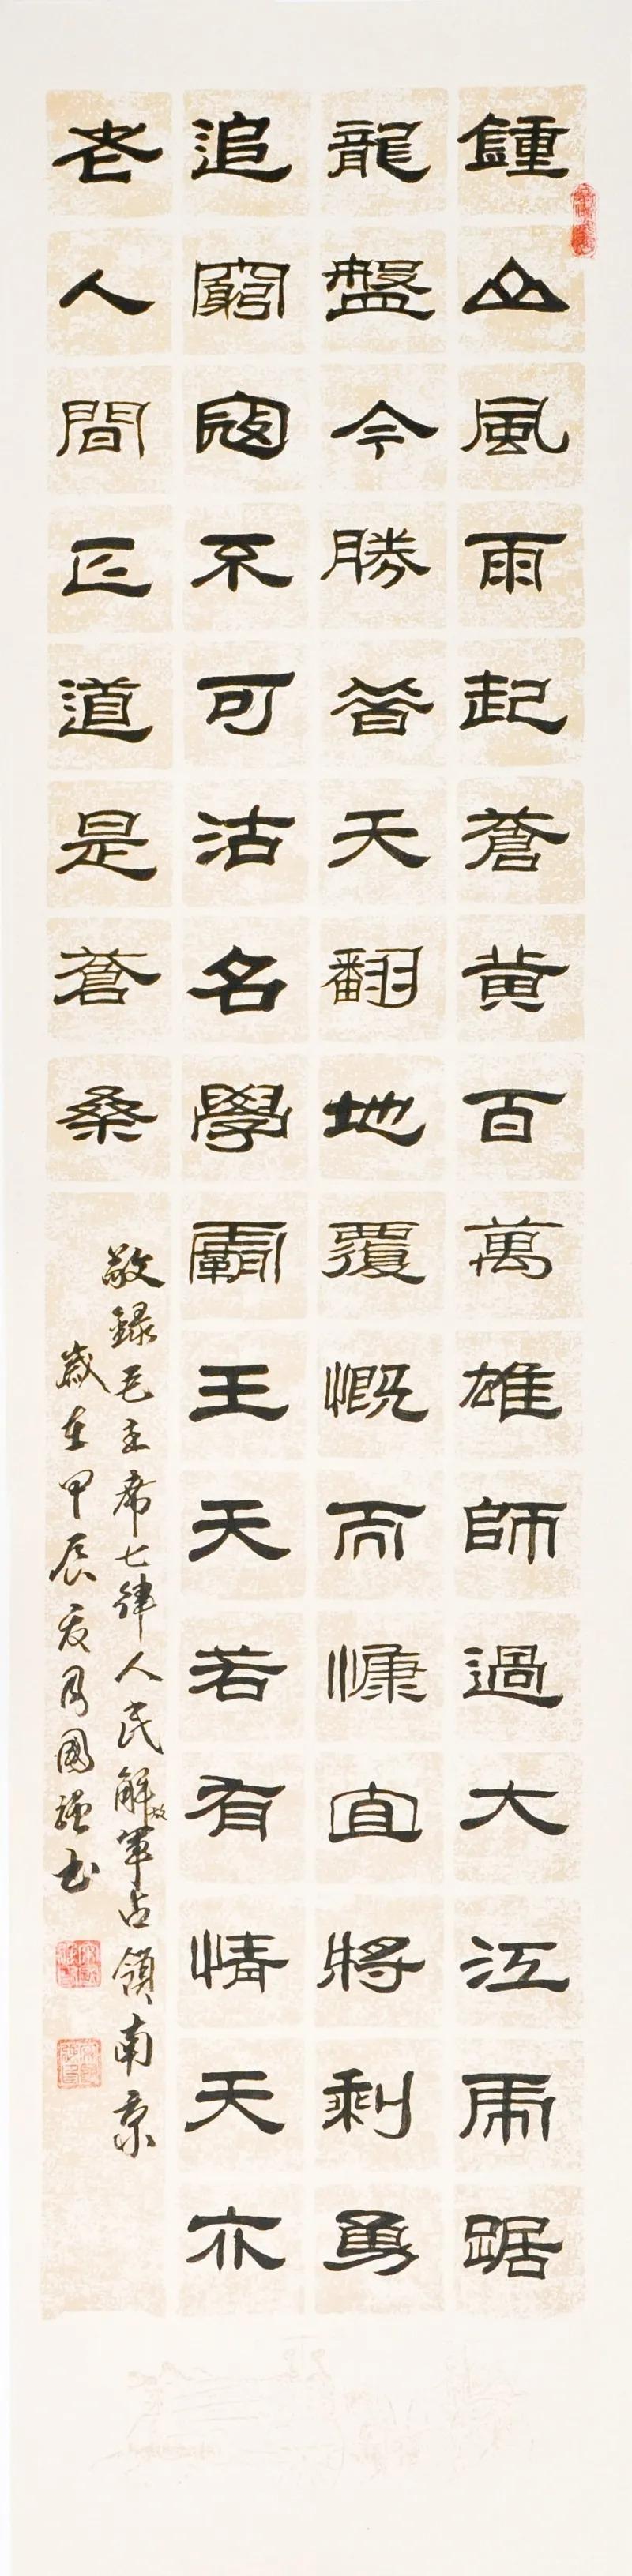 鍾山風雨起蒼黄百萬雄師過大江虎踞
龍盤今勝昔天翻地覆慨而慷宜將剩勇
追窮寇不可沽名學霸王天若有情天亦
老人間正道是蒼桑
敬録毛主席七律人民解放軍占領南京
歲在甲辰夏月國強书